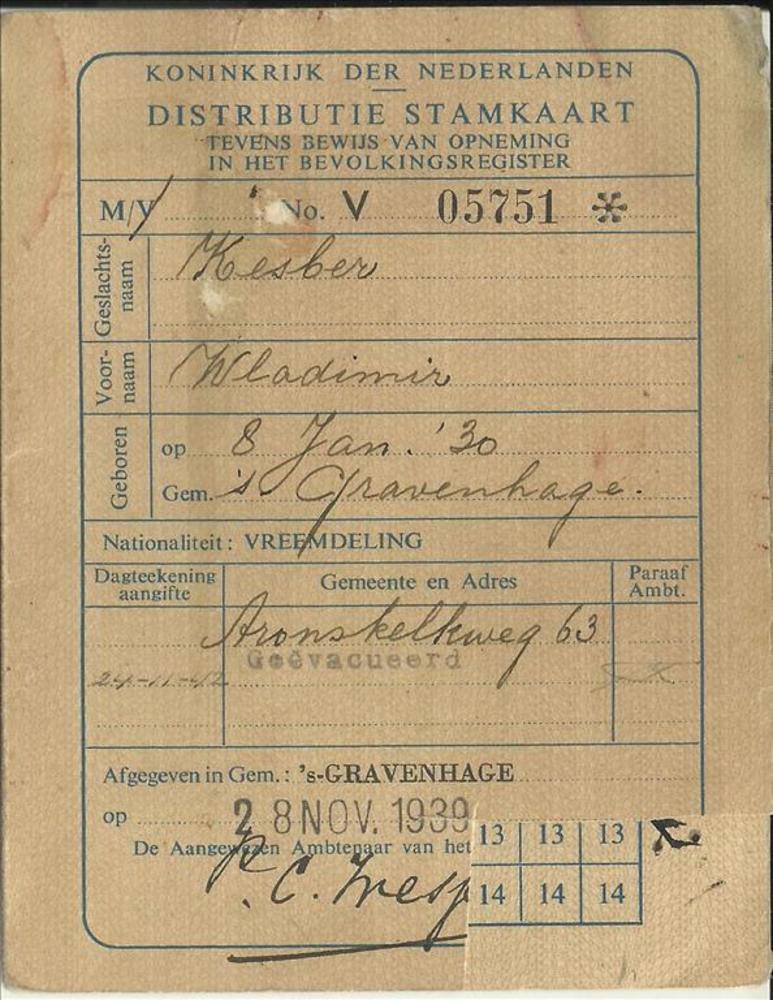 KONINKRIJK DER NEDERLANDEN
DISTRIBUTIE STAMKAART
TEVENS BEWIJS VAN OPNEMING
IN HET BEVOLKINGSREGISTER
M/V No. V 05751 *
Geslachts-
naam
Kesber
Voor-
naam
Wladimir
Geboren
op 8 Jan. '30
Gem. 's Gravenhage.
Nationaliteit: VREEMDELING
Dagteekening
aangifte
Gemeente en Adres
Paraaf
Ambt.
Aronskelkweg 63
Geëvacueerd
24-11-42
Afgegeven in Gem.: 's-GRAVENHAGE
op 28 NOV. 1939
De Aangewezen Ambtenaar van het
13 13 13
14 14 14